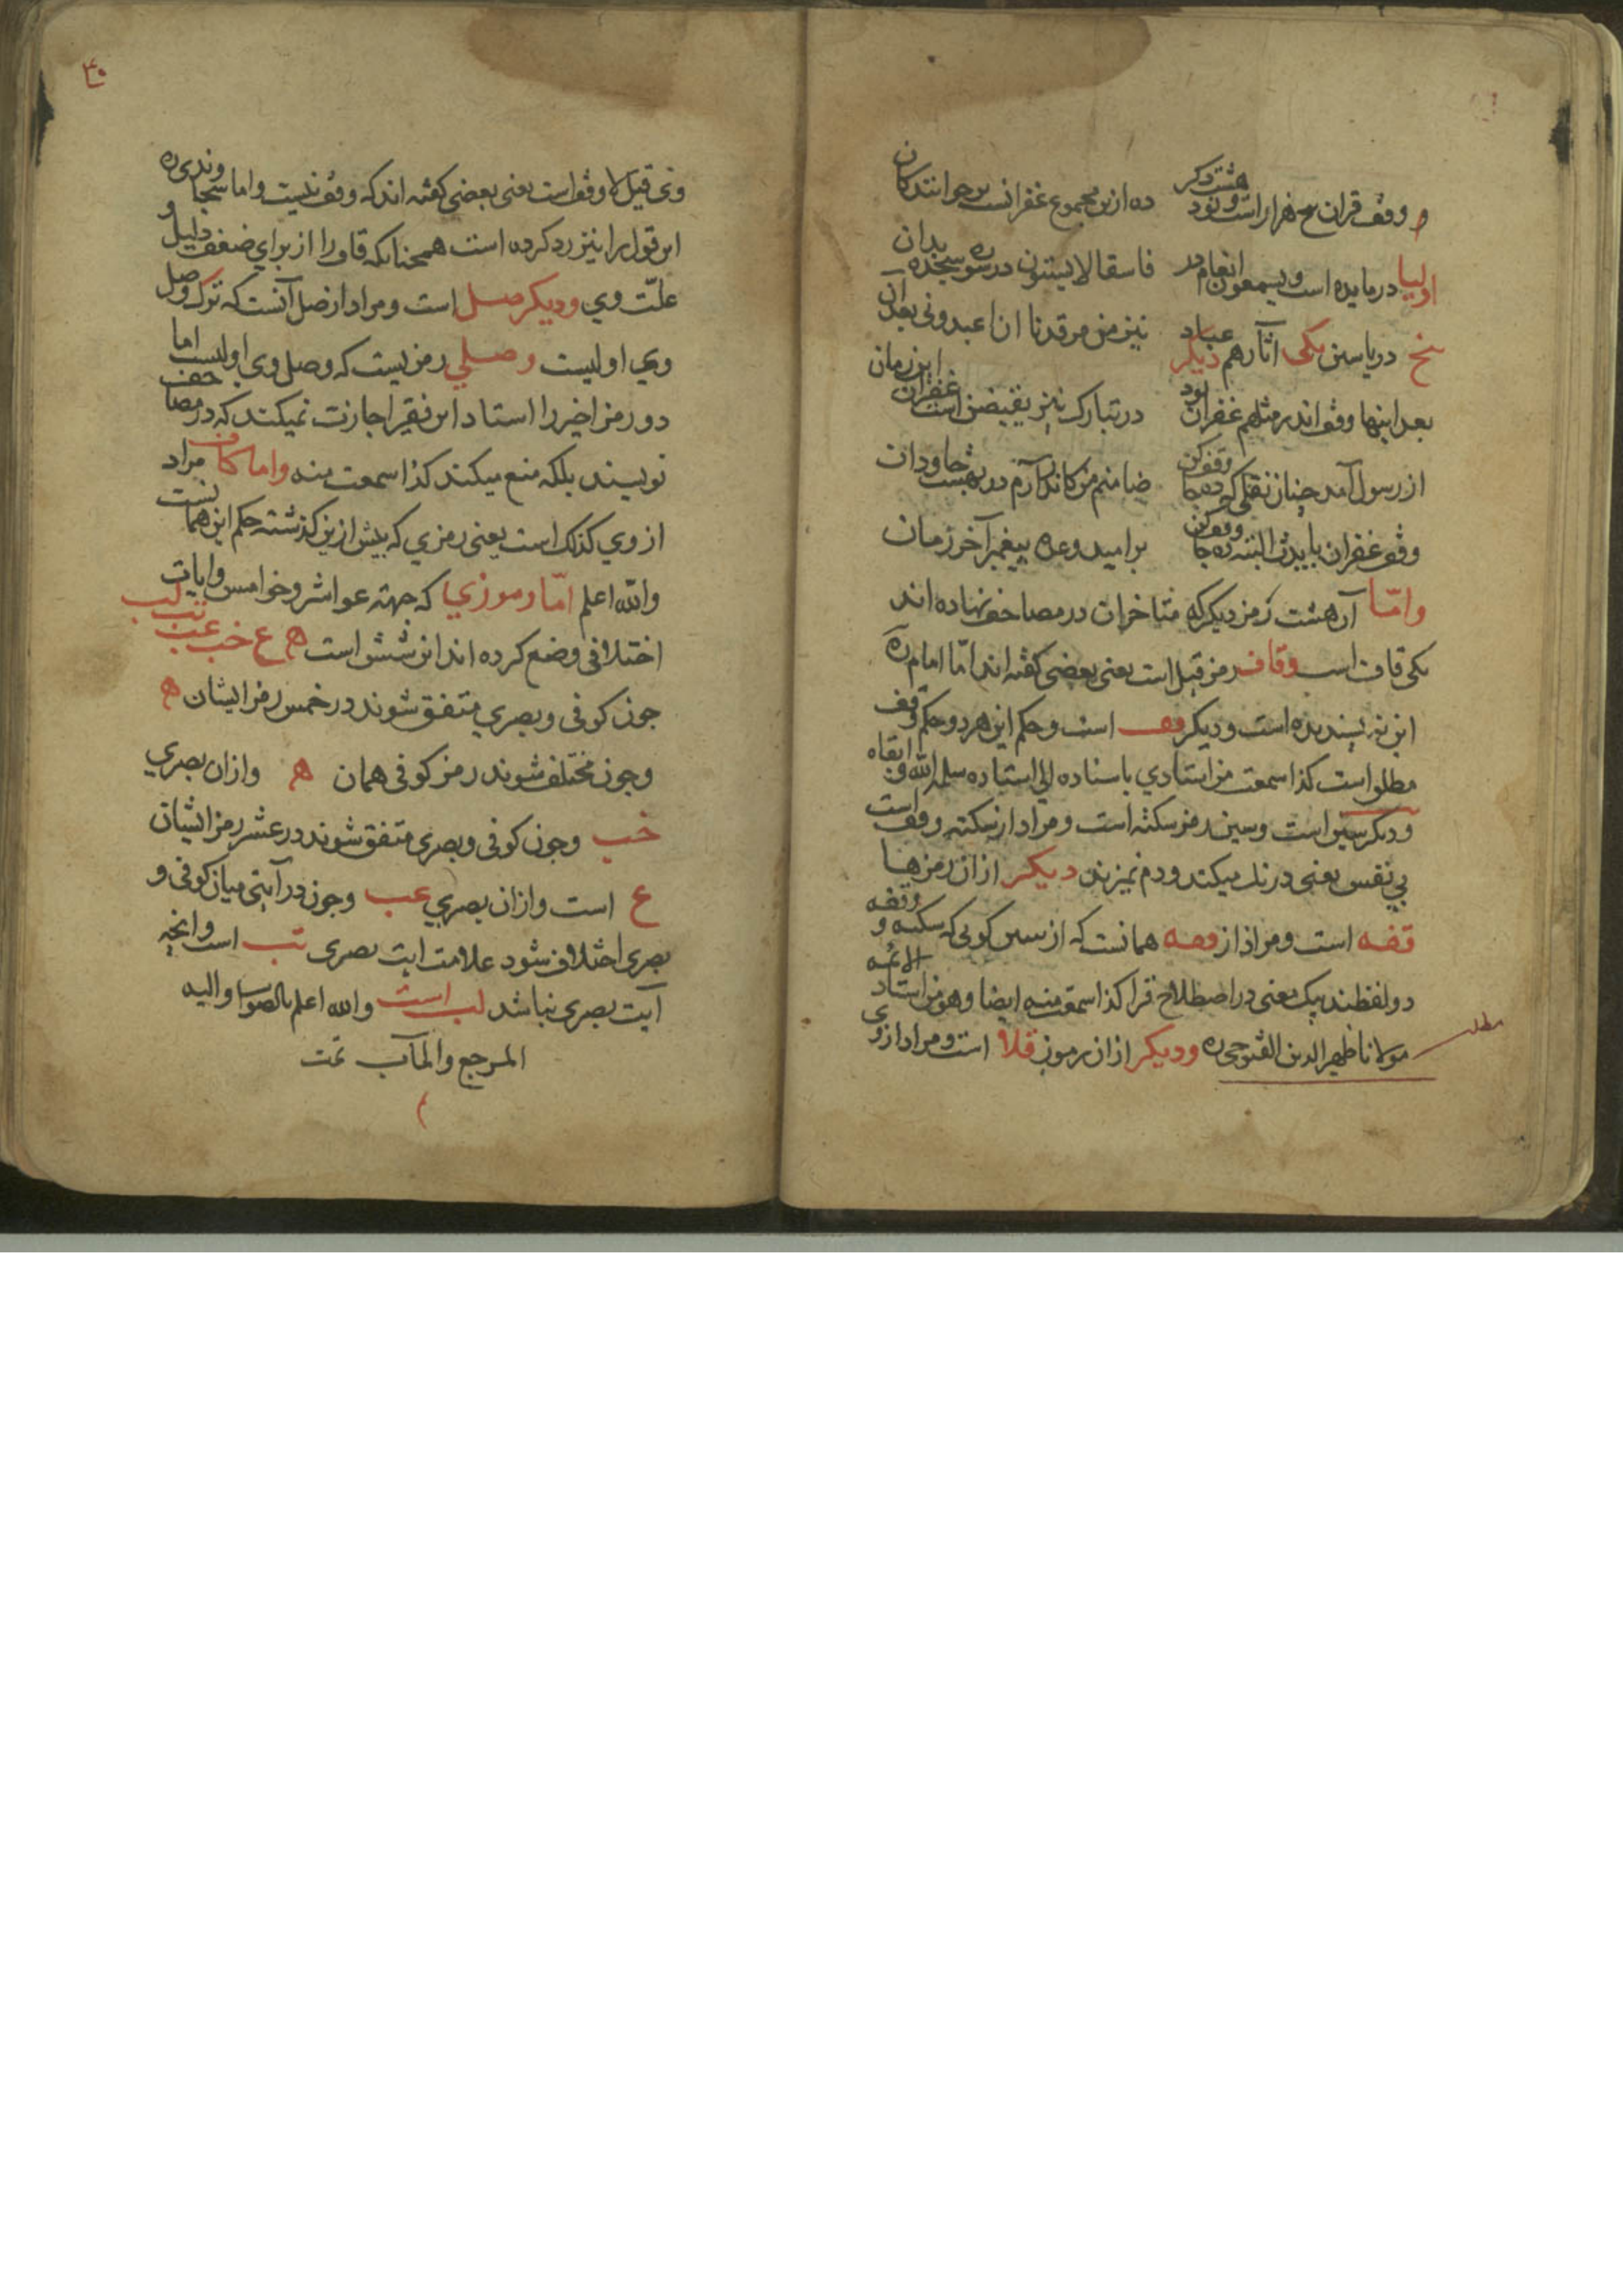 وقف قران سح هزار است و نود هشت دکر ده ازین مجموع غفرانست برخوانند کان
اولیا در مایده است و یسمعون انعام در فاسقا لا یستون در سوره سجده بدان
سخ در یاسین یکی آثارهم دیکر عباد نیز من مرقدنا ان اعبدونی بعد آن
بعد اینها وقف اند مثلهم غفران بود در تبارک نیز یقبضن است غفران این زمان
از رسول آمد چنان نقلی که ده جا وقف کن ضامنم من کاندرآرم در بهشت جاودان
وقف غفران بایدت البته ده جا وقف کن بر امید وعده پیغمبر آخر زمان
وامّا آن هشت رمز دیکر که متاخران در مصاحف نهاده اند
یکی قاف است وقاف رمز قیل است یعنی بعضی کفته اند امّا امام ره
این نه پسندیده است و دیکر قف است و حکم این هر دو حکم وقف
مطلو است کذا سمعت من استادی باسناده الی استاده سلمه الله و ابقاه
ودیکر سین است وسین رمز سکته است و مراد از سکته وقف است
بی نفس یعنی درنک میکند و دم نمیزند دیکر از ان رمزها
قفه است ومراد از وقفه همانست که از سین کویی که سکته و وقفه
دو لفظند بیک معنی در اصطلاح قرا کذا سمعت منه ایضا وهو من استاد الائمه
مولانا ظهیر الدین الفتوحی ره ودیکر از ان رموز قلا است و مراد از وی
مطلب
۳۰
وی قیل لا وقف است یعنی بعضی کفته اند که وقف نیست واما سجاوندی ره
این قول را نیز رد کرده است همچنانکه قاف را از برای ضعف دلیل و
علّت وی ودیکر صل است و مراد از صل آنست که ترک وصل
وی اولیست وصلی رمزیست که وصل وی اولیست اما
دو رمز اخیر را استاد این فقیر اجازت نمیکند که در مصاحف
نویسند بلکه منع میکند کذا سمعت منه واما کاف مراد
از وی کذلک است یعنی رمزی که پیش ازین کذشته حکم این همانست
والله اعلم امّا رموزی که جهته عواشر و خوامس و ایات
اختلافی وضع کرده اند ان شش است ه ع خب عب تب لب
چون کوفی و بصری متفق شوند در خمس رمز ایشان ه
وچون مختلف شوند رمز کوفی همان ه وازان بصری
خب وچون کوفی و بصری متفق شوند در عشر رمز ایشان
ع است وازان بصری عب وچون در آیتی میان کوفی و
بصری اختلاف شود علامت ایت بصری تب است وانچه
آیت بصری نباشد لب است والله اعلم بالصواب والیه
المرجع والمآب تمت